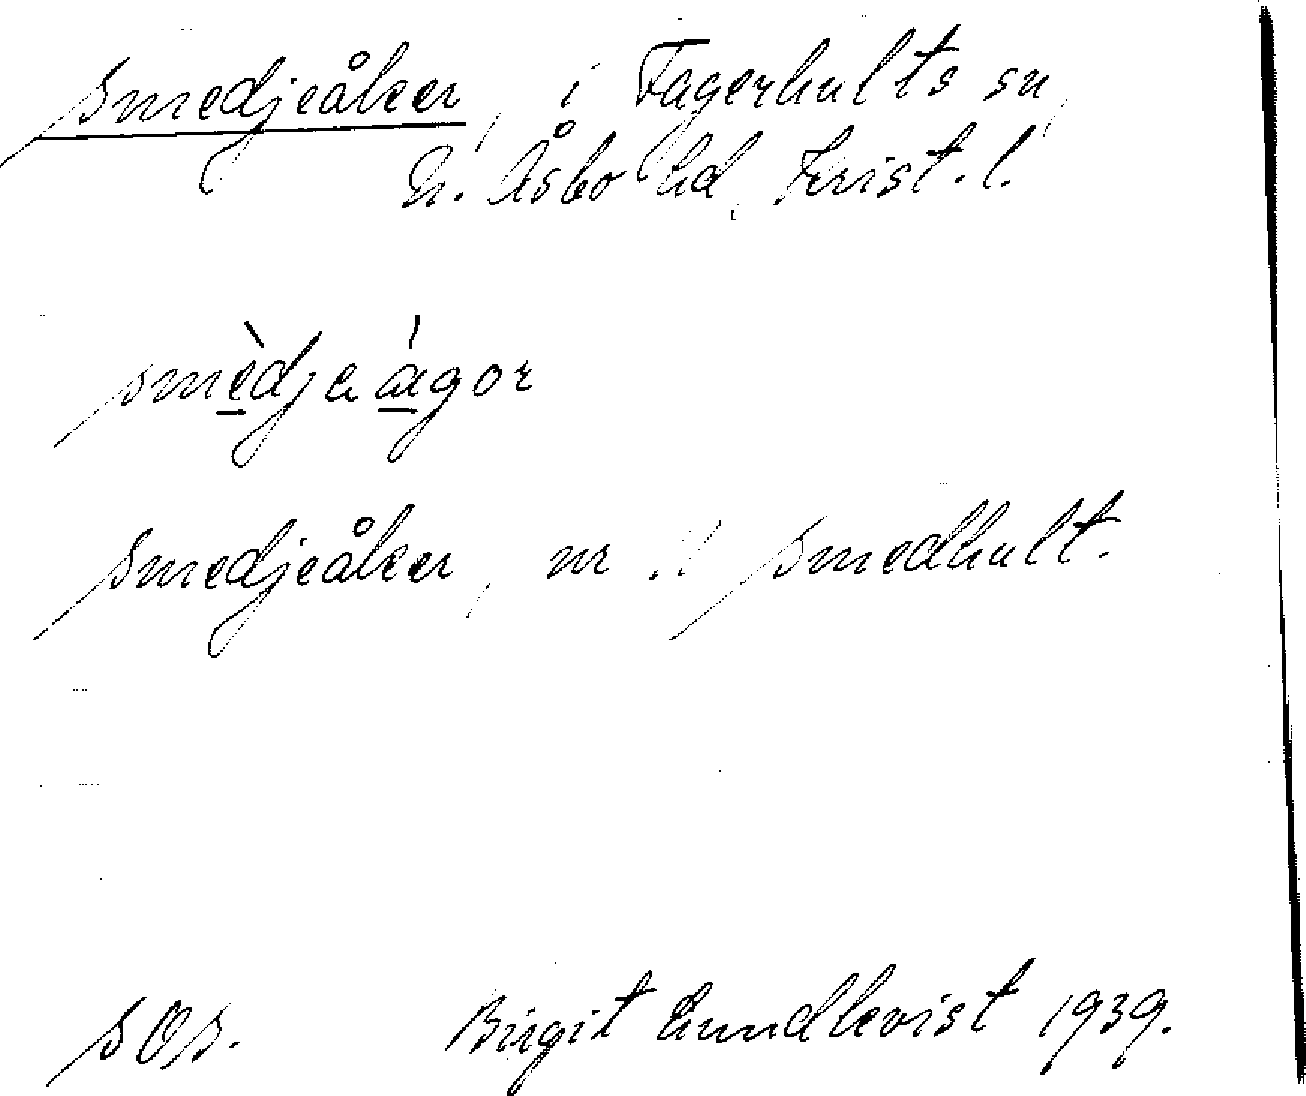 Smedjeåker, i Fagerhults sn,
N. Åsbo hd, Krist. l.
smèdjeágor
Smedjeåker, nr Smedhult.
SOS. Birgit Lundkvist 1939.